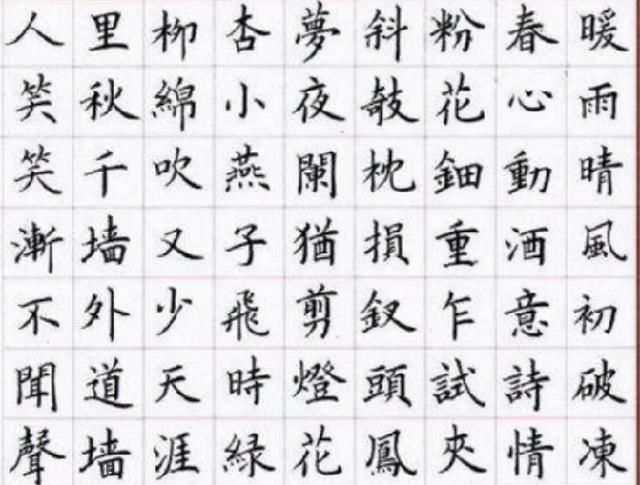 暖雨晴風初破凍
春心動酒意詩情
粉花鈿重乍試夾
斜攲枕損釵頭鳳
夢夜闌猶剪燈花
杏小燕子飛時緑
柳綿吹又少天涯
里秋千墙外道墙
人笑笑漸不聞聲